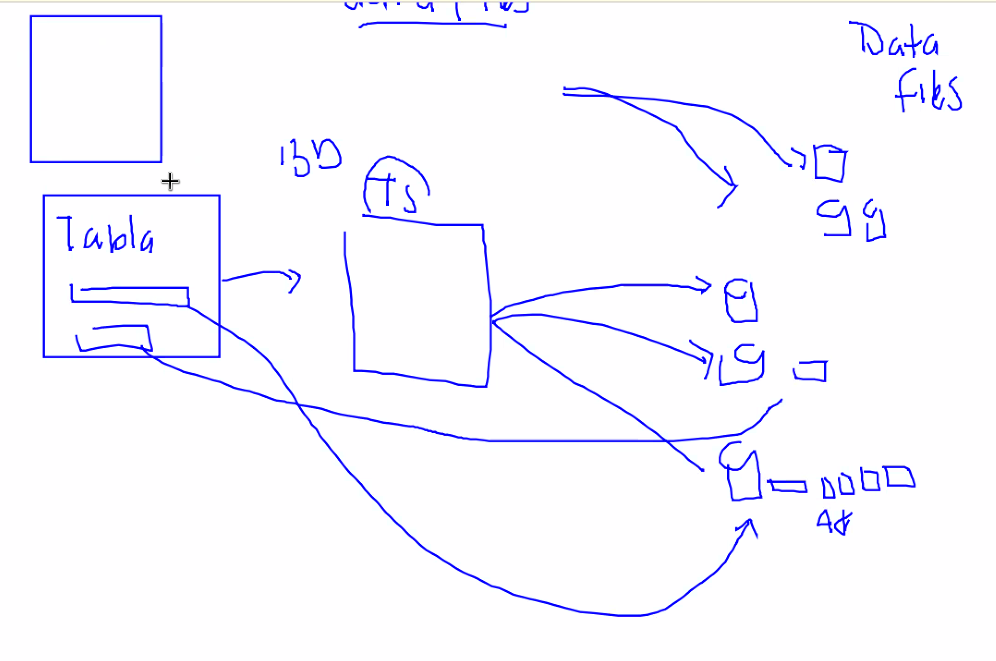 Data
files
BD
Ts
Tabla